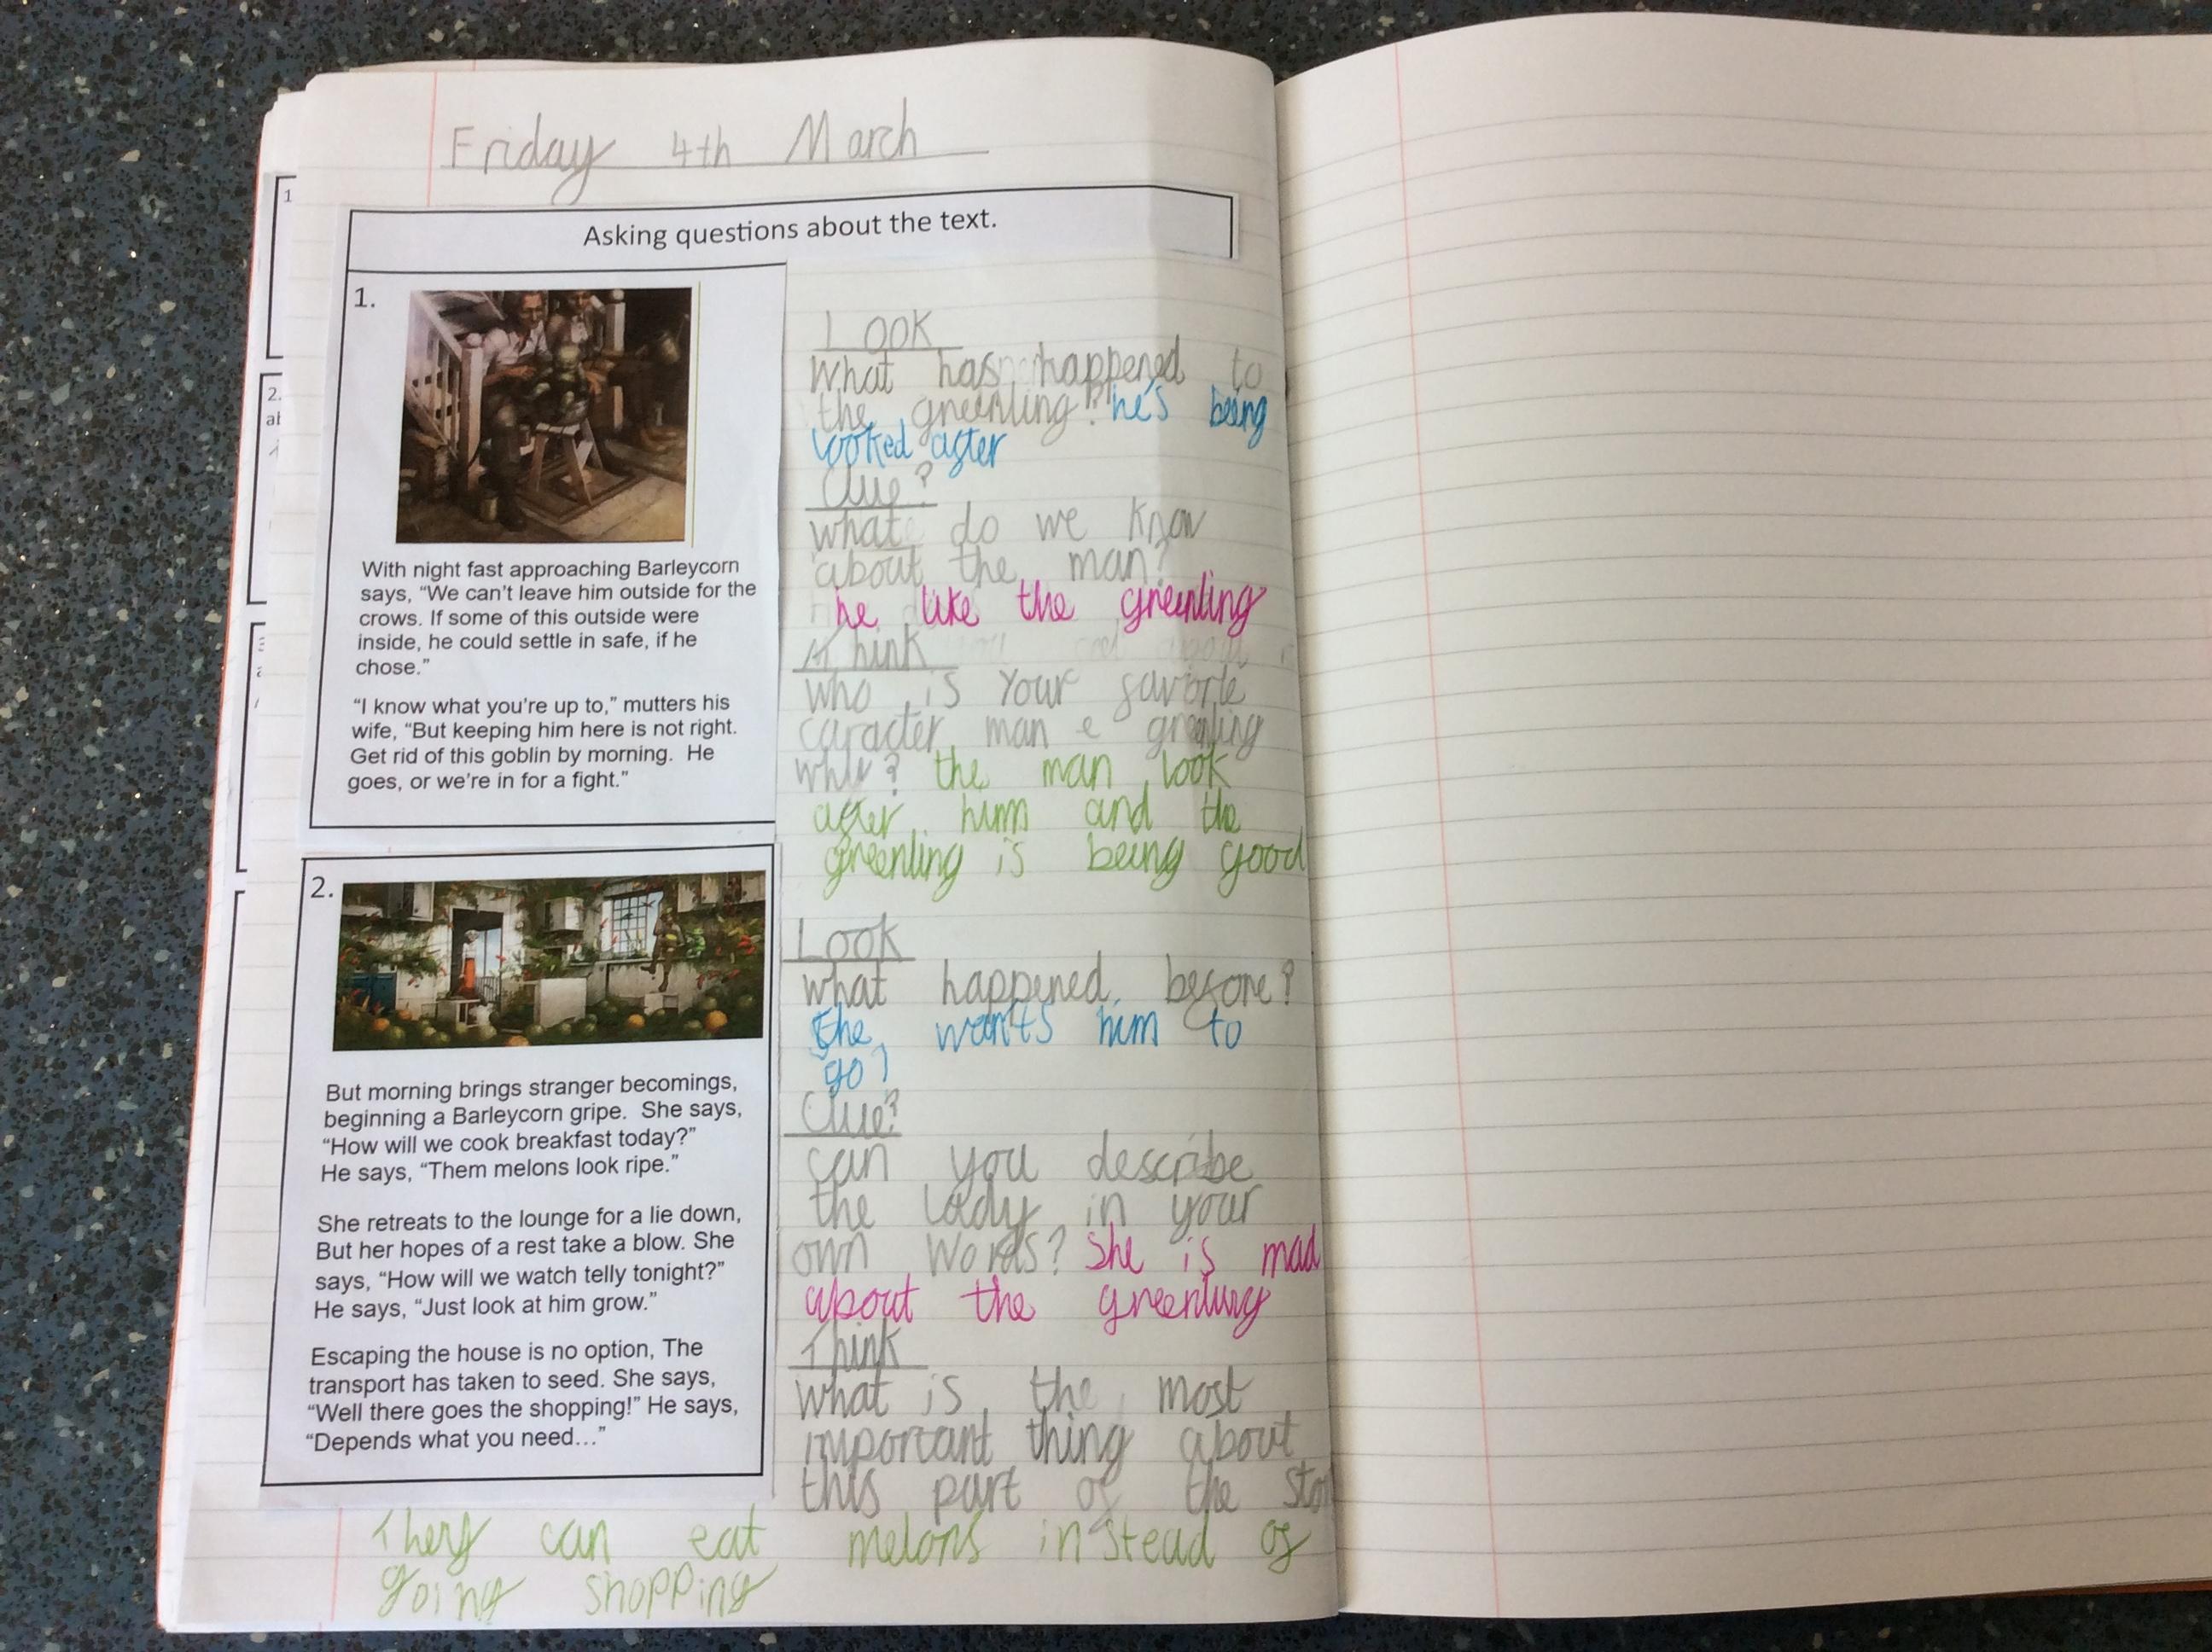 Friday 4th March
Asking questions about the text.
1.
With night fast approaching Barleycorn
says, “We can’t leave him outside for the
crows. If some of this outside were
inside, he could settle in safe, if he
chose.”
“I know what you’re up to,” mutters his
wife, “But keeping him here is not right.
Get rid of this goblin by morning. He
goes, or we’re in for a fight.”
Look
What has happened to
the greenling? he's being
looked after
Clue?
what do we know
about the man?
he like the greenling
Think
who is your favorte
caracter man greenling
the man look
after him and the
greenling is being good
2.
But morning brings stranger becomings,
beginning a Barleycorn gripe. She says,
“How will we cook breakfast today?”
He says, “Them melons look ripe.”
She retreats to the lounge for a lie down,
But her hopes of a rest take a blow. She
says, “How will we watch telly tonight?”
He says, “Just look at him grow.”
Escaping the house is no option, The
transport has taken to seed. She says,
“Well there goes the shopping!” He says,
“Depends what you need…”
Look
what happened before?
wants him to
go
Clue?
can you describe
the lady in your
own words? she is mad
about the greenling
Think
what is the most
important thing about
this part of the
They can eat melons instead of
going shopping
1
2.